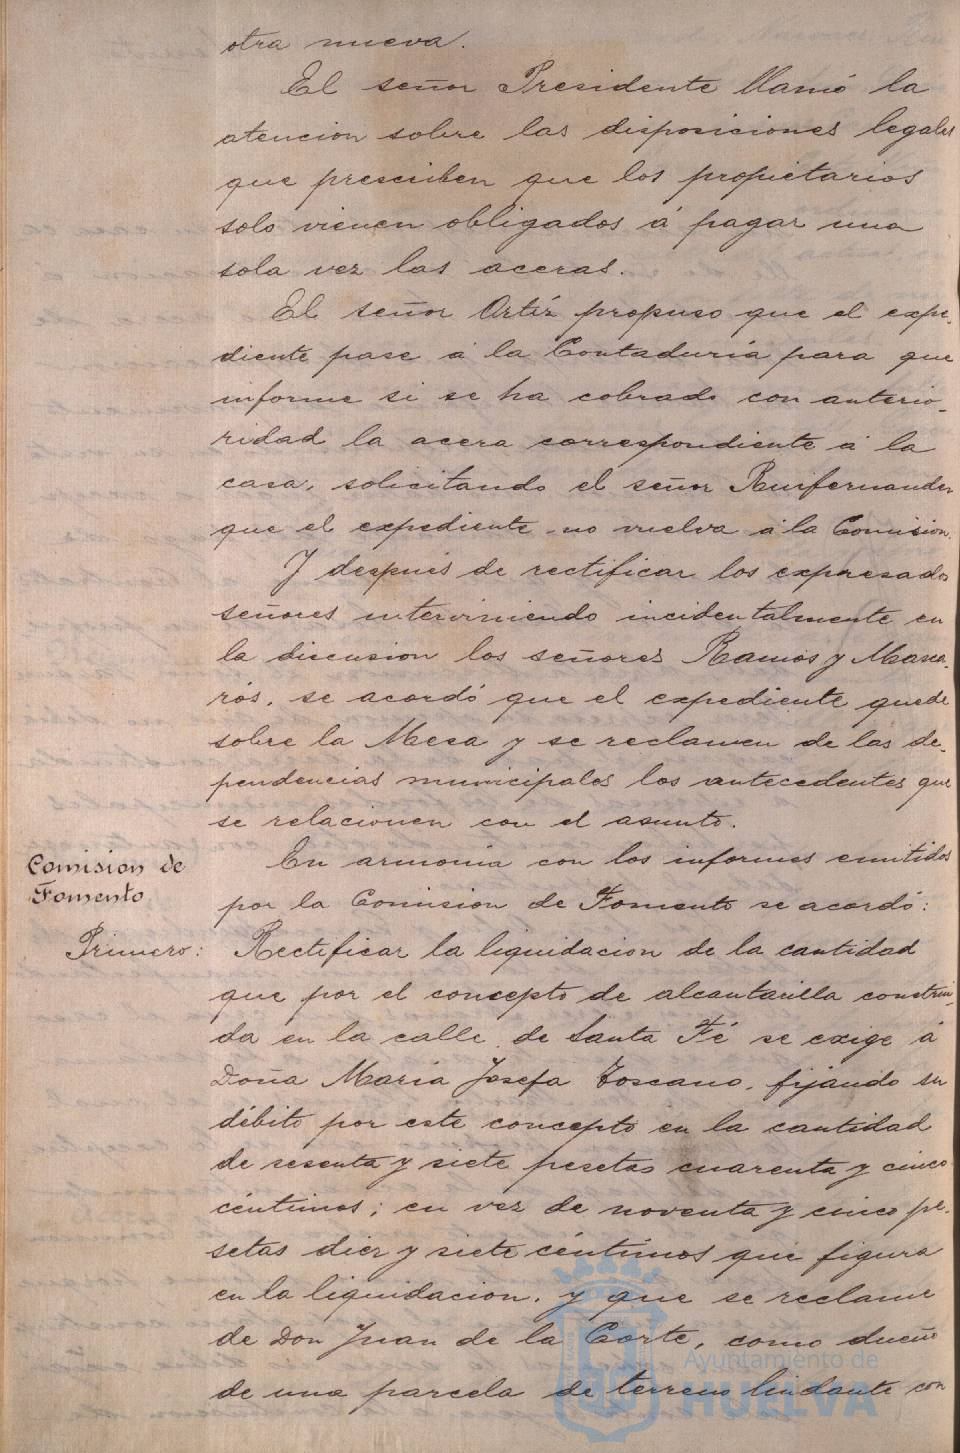 otra nueva.
El señor Presidente llamó la
atencion sobre las disposiciones legales
que prescriben que los propietarios
solo vienen obligados á pagar una
sola vez las aceras.
El señor Ortíz propuso que el expe-
diente pase á la Contaduría para que
informe si se ha cobrado con anterio-
ridad la acera correspondiente á la
casa, solicitando el señor Ruifernandez
que el expediente no vuelva á la Comision.
Y después de rectificar los expresados
señores interviniendo incidentalmente en
la discusion los señores Ramos y Manza-
rós, se acordó que el expediente quede
sobre la Mesa y se reclamen de las de-
pendencias municipales los antecedentes que
se relacionen con el asunto.
Comision de
Fomento
En armonía con los informes emitidos
por la Comision de Fomento se acordó:
Primero: Rectificar la liquidacion de la cantidad
que por el concepto de alcantarilla construi-
da en la calle de Santa Fé se exige á
Doña María Josefa Toscano, fijando su
débito por este concepto en la cantidad
de sesenta y siete pesetas cuarenta y cinco
céntimos; en vez de noventa y cinco pe-
setas diez y siete céntimos que figura
en la liquidacion, y que se reclame
de Don Juan de la Corte, como dueño
de una parcela de terreno lindante con
Ayuntamiento de
HUELVA